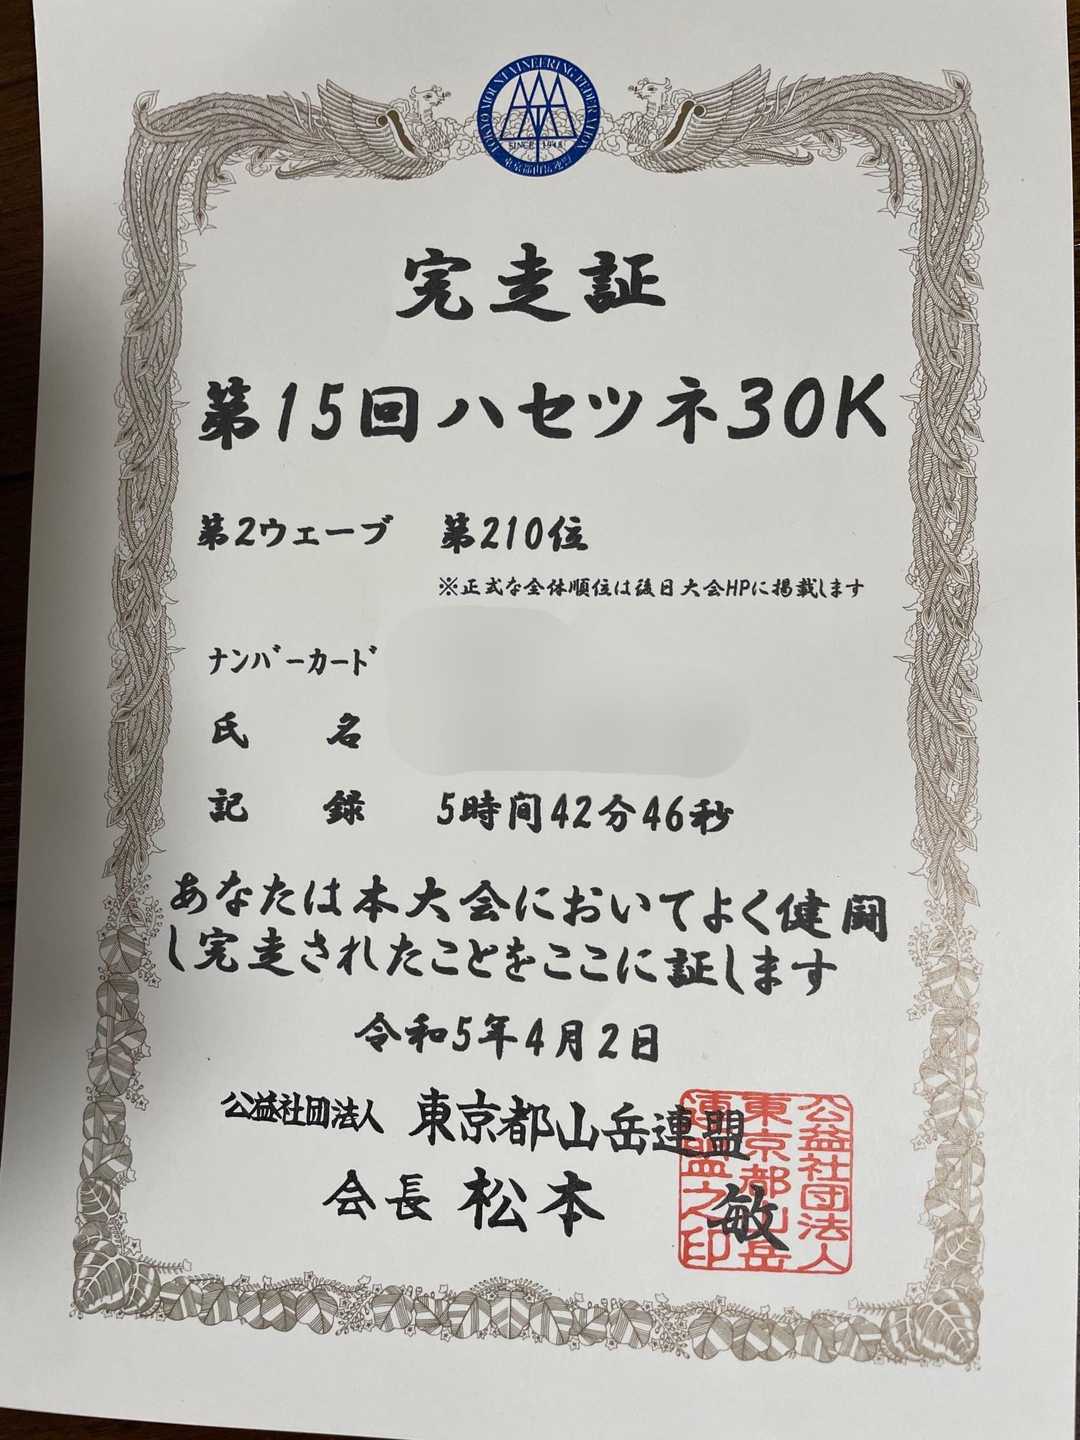 TOKYO MOUNTAINEERING FEDERATION
SINCE 1948
東京都山岳連盟
完走証
第15回ハセツネ30K
第2ウェーブ 第210位
※正式な全体順位は後日大会HPに掲載します
ナンバーカード
氏 名
記 録 5時間42分46秒
あなたは本大会においてよく健闘
し完走されたことをここに証します
令和5年4月2日
公益社団法人 東京都山岳連盟
会長 松本 敏
公益社団法人
東京都山岳
連盟之印